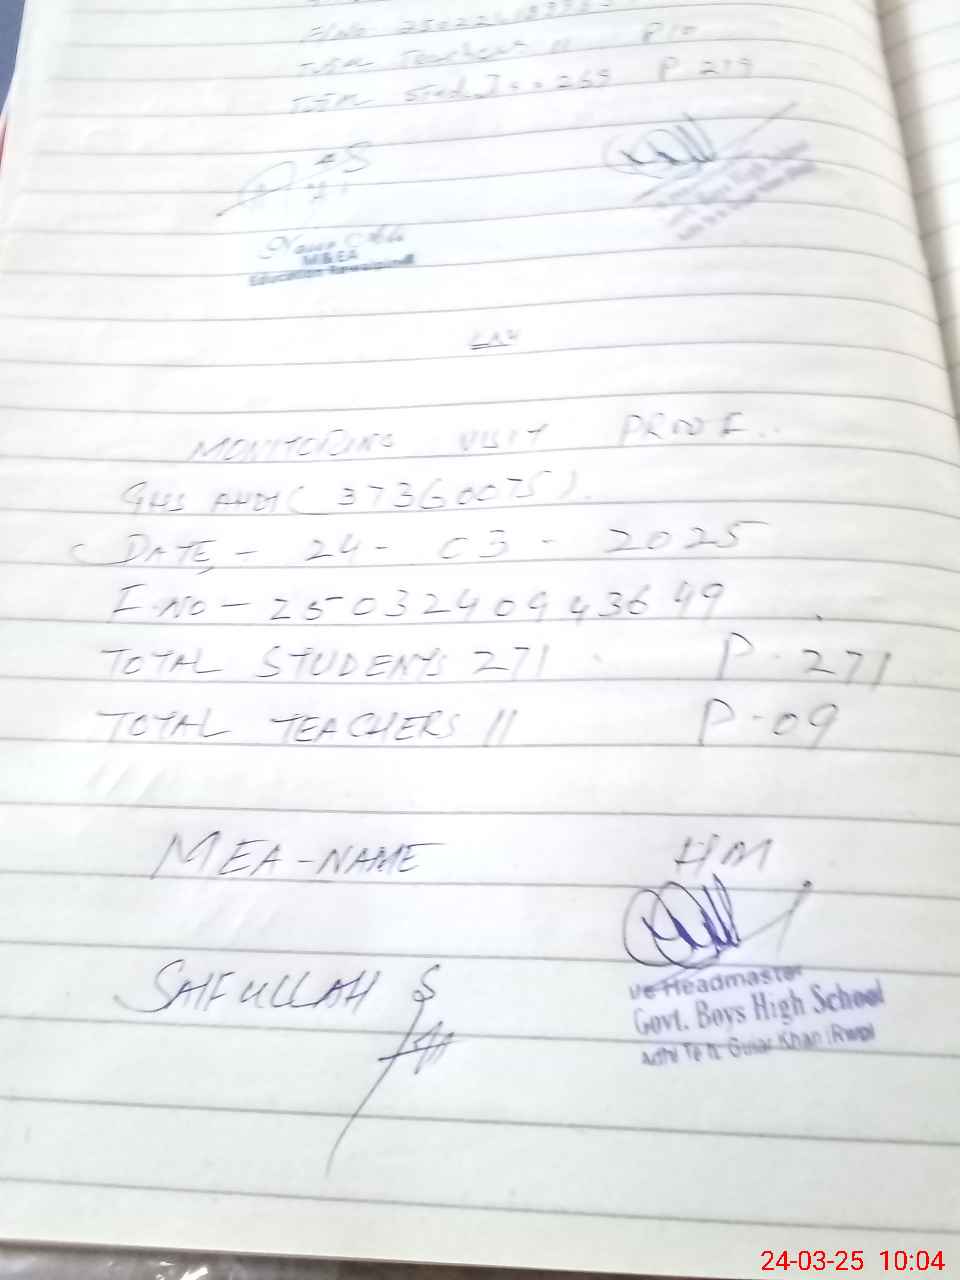 Total Teachers 11 P 10
P 219
M&EA
Education Rawalpindi
MONITORING VISIT PROOF..
GHS AHDI (37360075).
DATE, - 24 - 03 - 2025
I.NO - 2503240943649
TOTAL STUDENTS 271 P. 271
TOTAL TEACHERS 11 P - 09
MEA-NAME HM
SAIFULLAH
I/c Headmaster
Govt. Boys High School
Adhi Teh. Gujar Khan (Rwp)
24-03-25 10:04